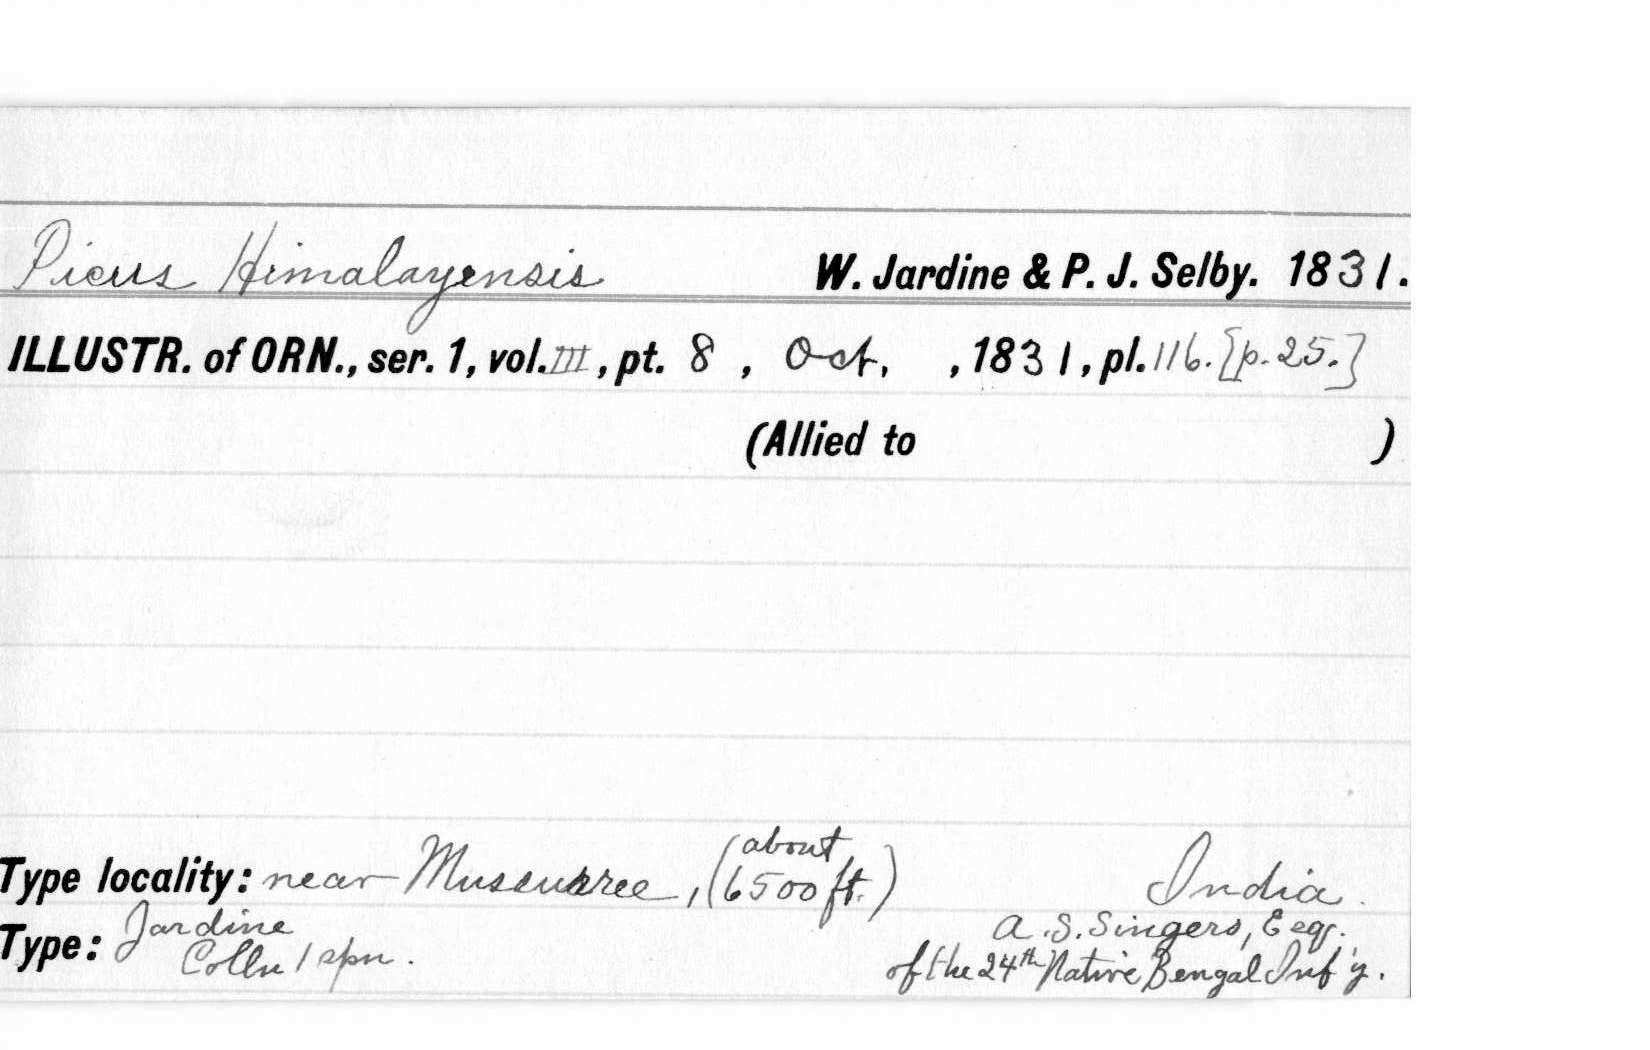 Picus Himalayensis W. Jardine & P. J. Selby. 1831.
ILLUSTR. of ORN., ser. 1, vol. III, pt. 8, Oct. , 1831, pl. 116. [p. 25.]
(Allied to )
Type locality: near Mussuree, (about 6500 ft.) India.
Type: Jardine Colln 1 spn. A. S. Singers, Esqr.
of the 24th Native Bengal Inf'y.